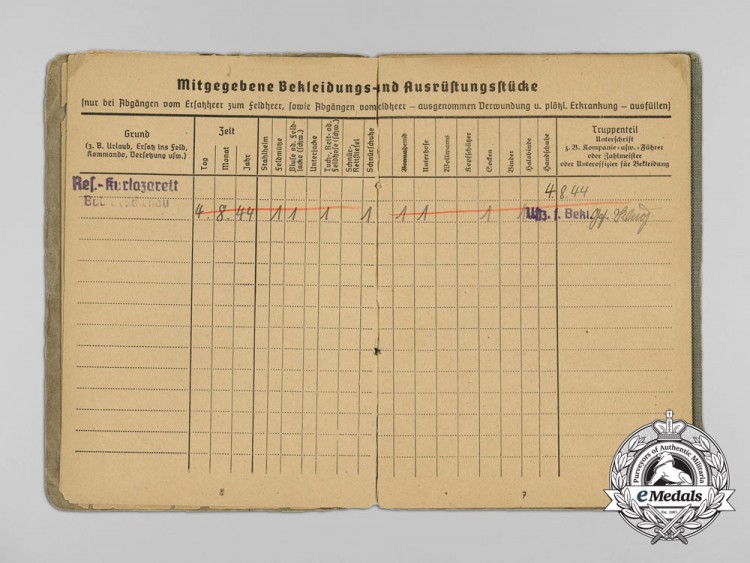 Mitgegebene Bekleidungs-und Ausrüstungsstücke
(nur bei Abgängen vom Ersatzheer zum Feldheer, sowie Abgängen vom eldheer — ausgenommen Verwundung u. plötzl. Erkrankung — ausfüllen)
Grund
(z. B. Urlaub, Ersatz ins Feld,
Kommando, Versetzung usw.)
Zeit
Tag
Monat
Jahr
Stahlhelm
Feldmütze
Bluse od. Feld-
jacke (schw.)
Unterjacke
Tuch-, Reit- od.
Feldhose (schw.)
Schnür-,
Reitstiefel
Schnürschuhe
Unterhose
Wollwams
Kopfschützer
Socken
Binder
Halsbinde
Handschuhe
Truppenteil
Unterschrift
z. B. Kompanie- usw. -Führer
oder Zahlmeister
oder Unteroffizier für Bekleidung
Res.-Kurlazarett
4.8.44
4. 8. 44 1 1 1 1 1 1 1 1 Uffz. f. Bekl.
6
7
Purveyors of Authentic Militaria
eMedals